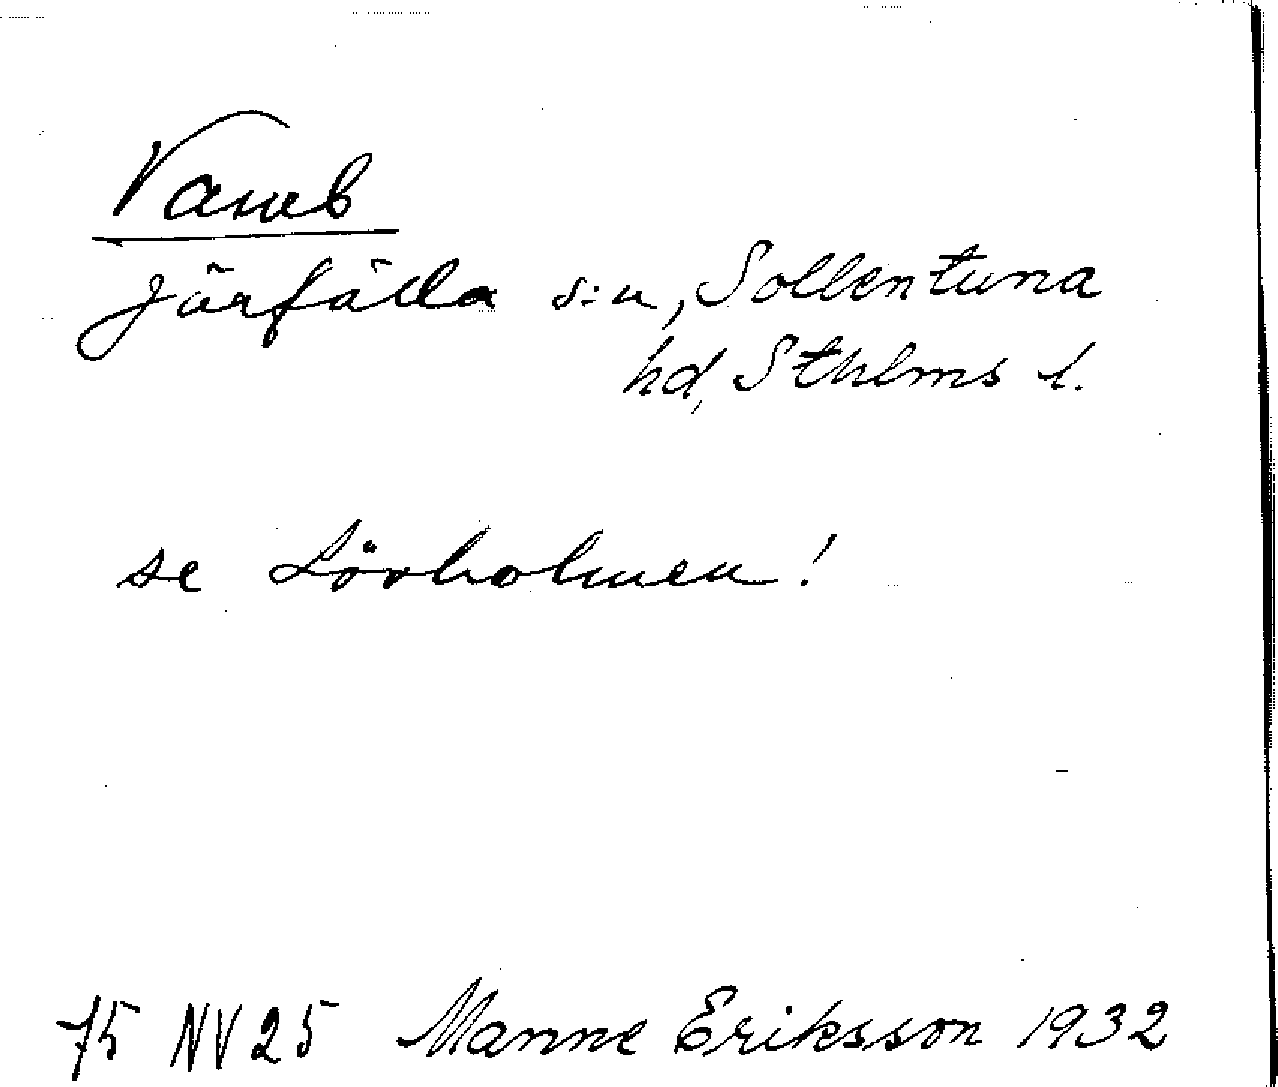 Vaneb
Järfälla s:n, Sollentuna
hd, Sthlms l.
se Lövholmen!
75 NV 25 Manne Eriksson 1932